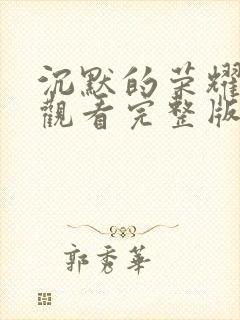 沉默的荣耀
觀看完整版
郭秀華